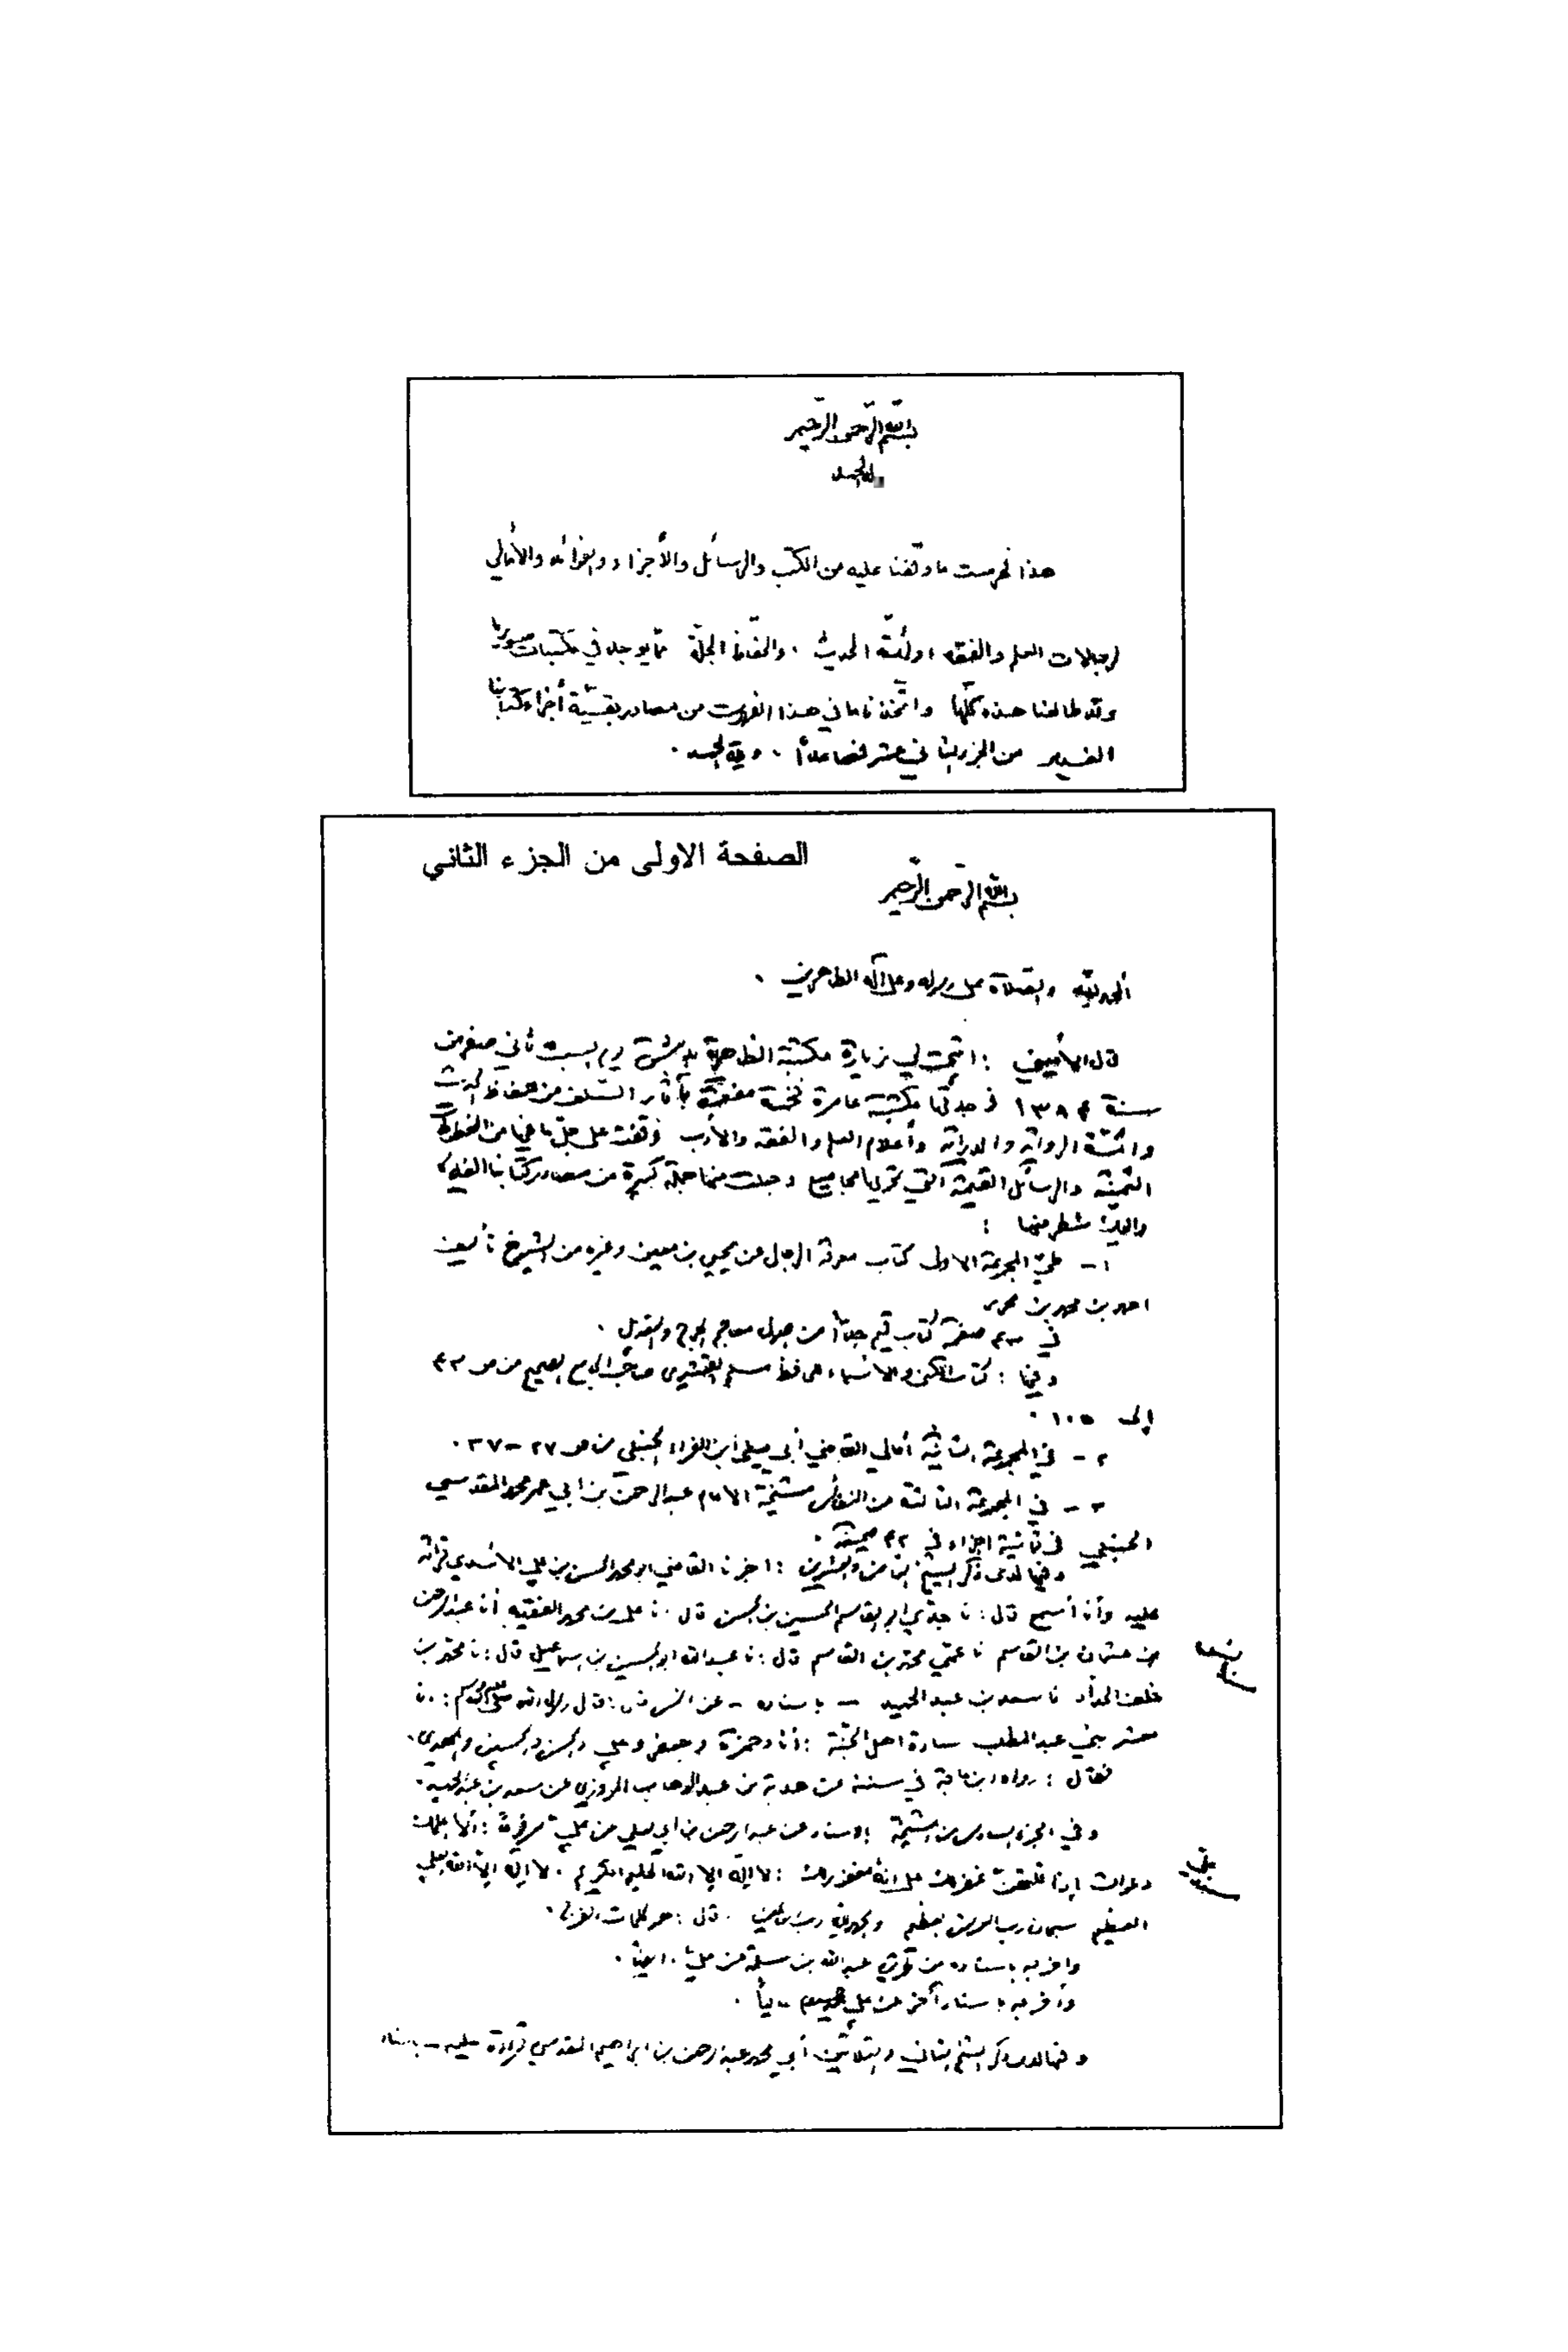 بسم الله الرحمن الرحيم
وله الحمد
هذا فهرست ما وقفنا عليه من الكتب والرسائل والأجزاء والفوائد والأمالي
لرجالات العلم والفقه وأئمّة الحديث . والحفّاظ الجلّة ممّا يوجد في مكتبات سوريا
وقد طالعنا هذه كلّها واتّخذنا ما في هذا الفهرست من مصادر بقيّة أجزاء كتابنا
الغدير من الجزء الثاني عشر فصاعداً . وله الحمد .
الصفحة الاولى من الجزء الثاني
بسم الله الرحمن الرحيم
الحمد لله والصّلاة على رسوله وعلى آله الطاهرين .
قال الأميني : اتيحت لي زيارة مكتبة الظاهرية بدمشق يوم السبت ثاني صفر من
سنة ١٣٨٤ فوجدتُها مكتبة عامرة فخمة مفعمة بآثار السّلف من حفّاظ الحديث
وأئمّة الرواية والدراية وأعلام العلم والفقه والأدب فوقفت على جلّ ما فيها من المخطوطات
الثمينة والرسائل القيّمة التي تحويها مجاميع وجعلت منها جملة كبيرة من مصادر كتابنا الغدير
واليك شطر منها :
١ - في المجموعة الاولى كتاب معرفة الرجال عن يحيى بن معين وغيره من الشيوخ تأليف
احمد بن محمد بن محرز
في ٤٣ صفحة كتاب قيّم جدّاً من اصول معاجم الجرح والتعديل .
وفيها : كتاب الكنى والاسماء للحافظ مسلم القشيري صاحب الجامع الصحيح من ص ٤٣
إلى ١٠٥ .
٢ - في المجموعة الثانية أمالي القاضي أبي يعلى ابن الفراء الحنبلي من ص ٢٧ - ٣٧ .
٣ - في المجموعة الثالثة من النفائس مشيخة الامام عبد الرحمن بن ابي عمر محمد المقدسي
الحنبلي في ثمانية اجزاء في ٤٢ صحيفة .
وفيها لدى ذكر الشيخ الثامن والعشرين : اخبرنا القاضي ابو محمد الحسن بن علي الاسدي قراءة
عليه وأنا أسمع قال : نا جدّي ابو القاسم الحسين بن الحسن قال : نا علي بن محمد الفقيه أنا عبد الرحمن
بن عثمان بن القاسم نا عمّي محمد بن القاسم قال : نا عبد الله ابو الحسين بن اسماعيل قال : نا محمد بن
خلف الحدّاد نا سعد بن عبد الحميد - باسناده - عن انس قال : قال رسول الله صلى الله عليه وآله وسلم : نا
معشر بني عبد المطلب سادة اهل الجنّة : أنا وحمزة وجعفر وعلي والحسن والحسين والمهدي .
فقال : رواه ابن ماجة في سننه عن هدبة بن عبد الوهاب المروزي عن سعد بن عبد الحميد .
وفي الجزء السادس من المشيخة باسناد عن عبد الرحمن بن أبي ليلى عن علي مرفوعاً : ألا اعلمك
دعوات إذا قلتهنّ غفر لك على انّه مغفور لك : لا اله الا الله الحليم الكريم . لا اله الّا الله العلي
العظيم سبحان رب العرش العظيم والحمد لله ربّ العالمين . قال : هو كلمات الفرج .
واخرجه باسناده من طريق عبد الله بن مسلمة عن عليّ . ايضاً .
وأخرجه باسناد آخر عن علي ايضاً .
وفيها لدى ذكر الشيخ الثاني والثلاثين أبي محمد عبد الرحمن بن ابراهيم المقدسي قراءة عليه - باسناد